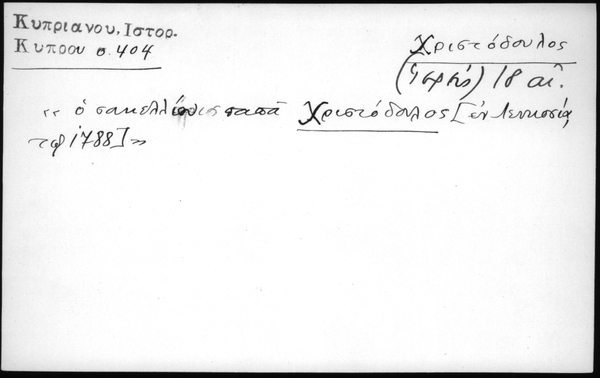 Κυπριανου, Ιστορ.
Κυπρου σ. 404
Χριστόδουλος
(ἱερεύς) 18 αἰ.
« ὁ σακελλάριος παπᾶ Χριστόδουλος [ἐν Λευκωσίᾳ,
τῷ 1788] »